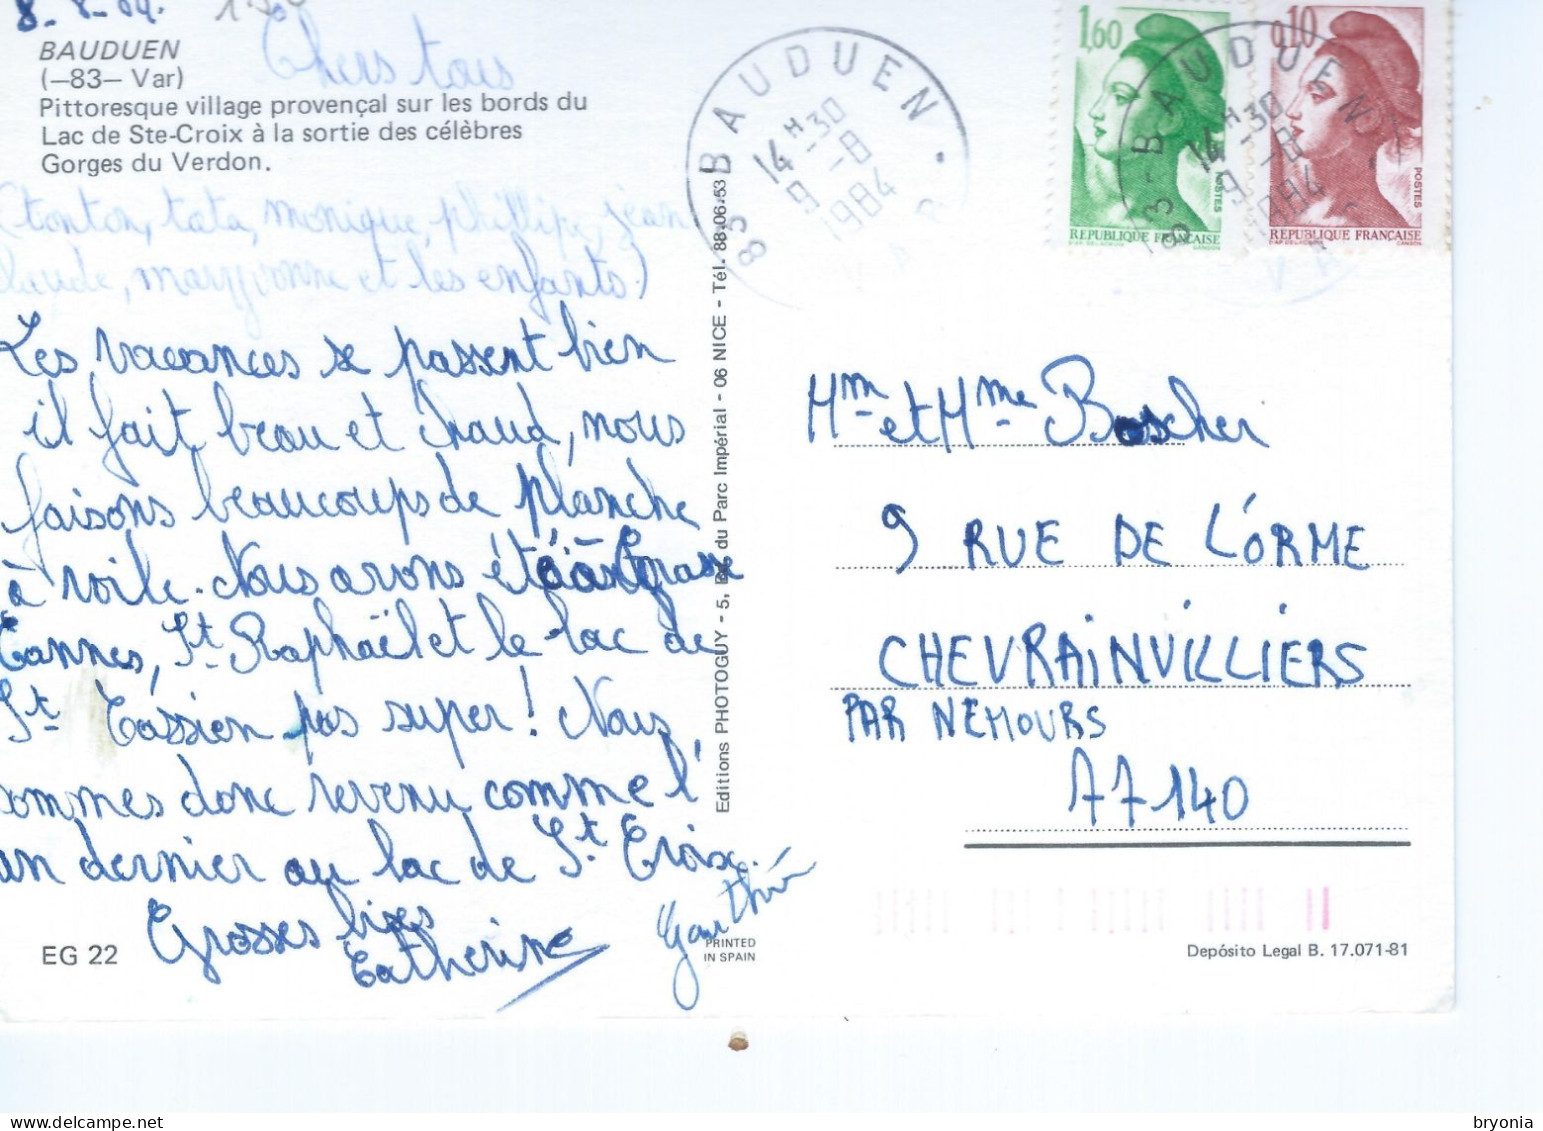 8-8-84.
BAUDUEN
(—83— Var)
Chers tous
Pittoresque village provençal sur les bords du
Lac de Ste-Croix à la sortie des célèbres
Gorges du Verdon.
(tonton, tata, monique, phillipe, jean
claude, maryvonne et les enfants)
Les vacances se passent bien
il fait beau et chaud, nous
faisons beaucoups de planche
à voile. Nous avons été à Grasse
Cannes, St. Raphaël et le lac de
St Cassien pas super! Nous
sommes donc revenu comme l'
an dernier au lac de St Croix.
Grosses bises
Catherine
Gauthier
EG 22
PRINTED
IN SPAIN
Editions PHOTOGUY - 5, Bd. du Parc Impérial - 06 NICE - Tél. 88.06.53
83 - BAUDUEN - VAR
14H-30
9-8
1984
1,60
POSTES
REPUBLIQUE FRANÇAISE
0,10
POSTES
REPUBLIQUE FRANÇAISE
83-BAUDUEN
14H-30
9-8
1984
VAR
Mm et Mme Boscher
9 RUE DE L'ORME
CHEVRAiNViLLiERS
PAR NEMOURS
77140
Depósito Legal B. 17.071-81
bryonia